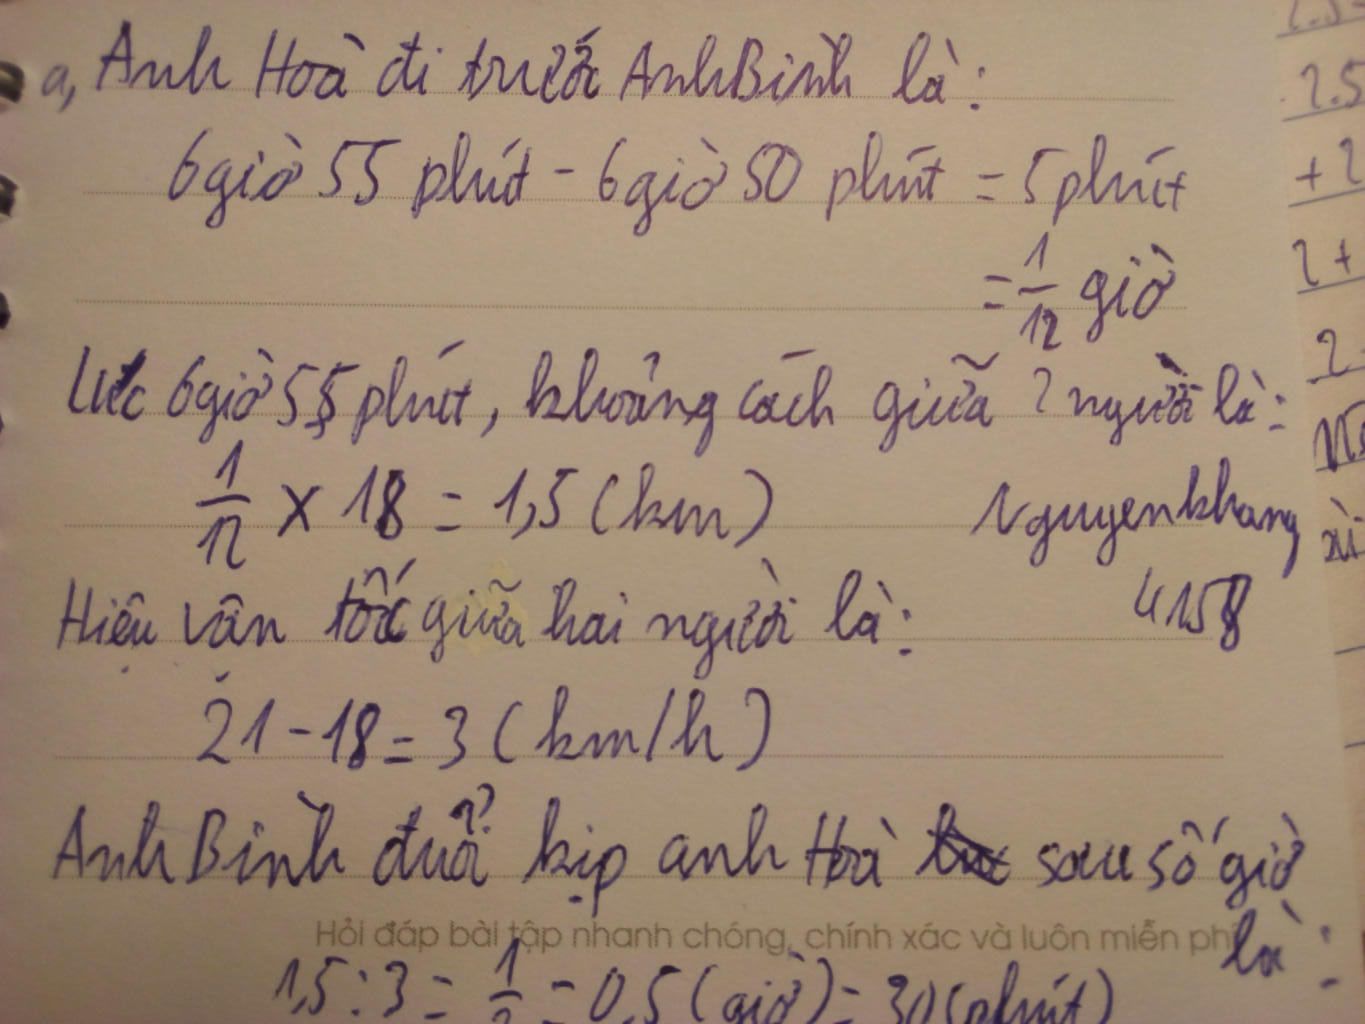 a, Anh Hoà đi trước Anh Bình là:
6 giờ 55 phút - 6 giờ 50 phút = 5 phút
= 1/12 giờ
Lúc 6 giờ 55 phút, khoảng cách giữa 2 người là:
1/12 x 18 = 1,5 (km)
Nguyenkhang
4158
Hiệu vân tốc giữa hai người là:
21 - 18 = 3 (km/h)
Anh Bình đuổi kịp anh Hoà sau số giờ
là:
Hỏi đáp bài tập nhanh chóng, chính xác và luôn miễn phí
1,5 : 3 = 1/2 = 0,5 (giờ) = 30 (phút)
2.5
+2
2+
2